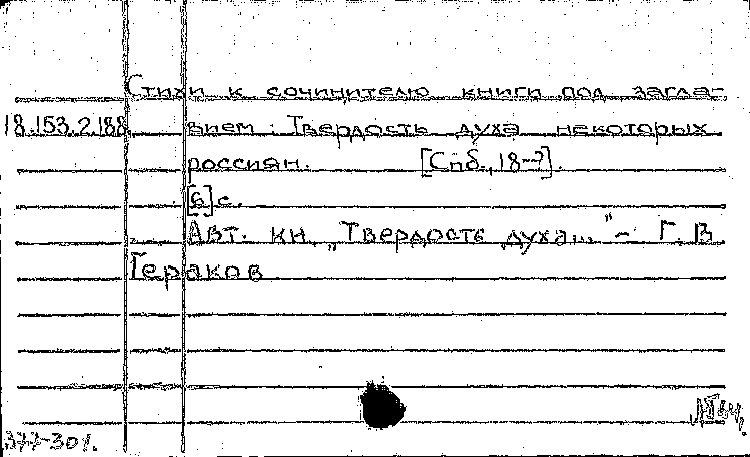 Стихи к сочинителю книги под загла-
18.153.2.188. вием: Твердость духа некоторых
россиян. [Спб., 18-?].
[6] с.
Авт. кн. „Твердость духа..." – Г. В.
Гераков
377-301.